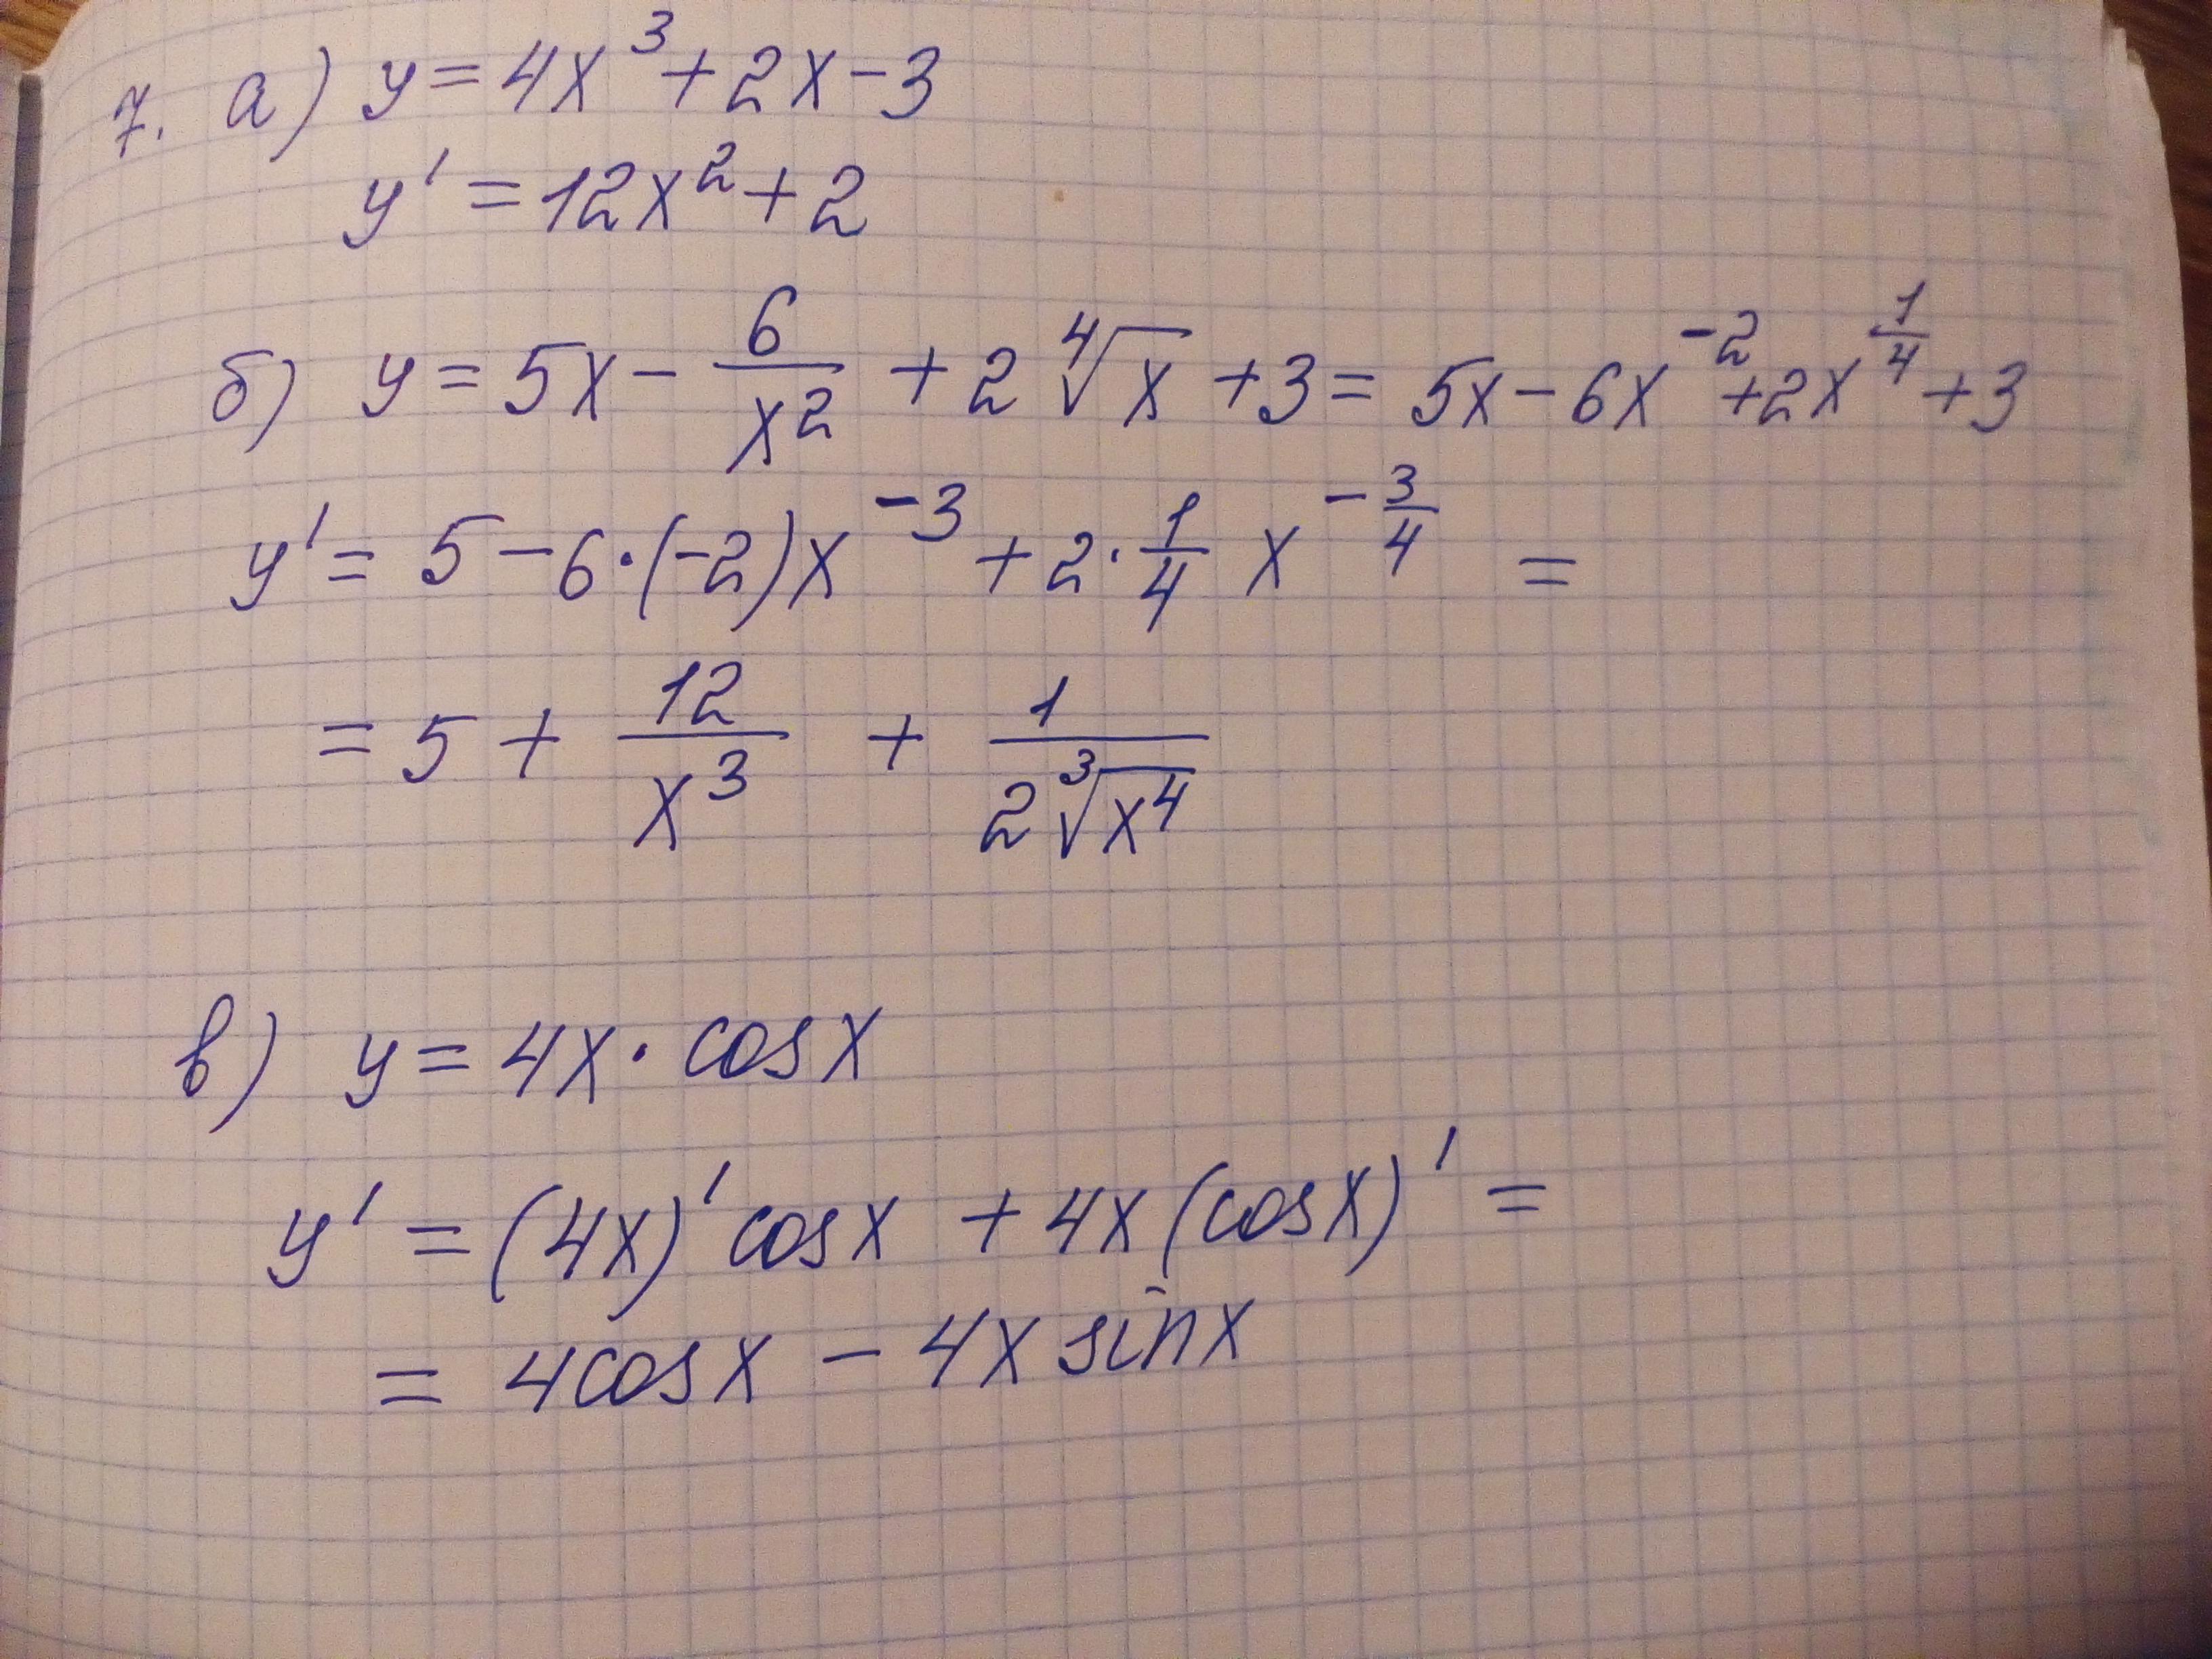 7. а) y = 4x³ + 2x − 3
y' = 12x² + 2
б) y = 5x − 6/x² + 2 ⁴√x + 3 = 5x − 6x^(-2) + 2x^(1/4) + 3
y' = 5 − 6·(−2)x^(-3) + 2·1/4 x^(-3/4) =
= 5 + 12/x³ + 1/(2 ³√x⁴)
в) y = 4x · cosx
y' = (4x)' cosx + 4x(cosx)' =
= 4cosx − 4x sinx